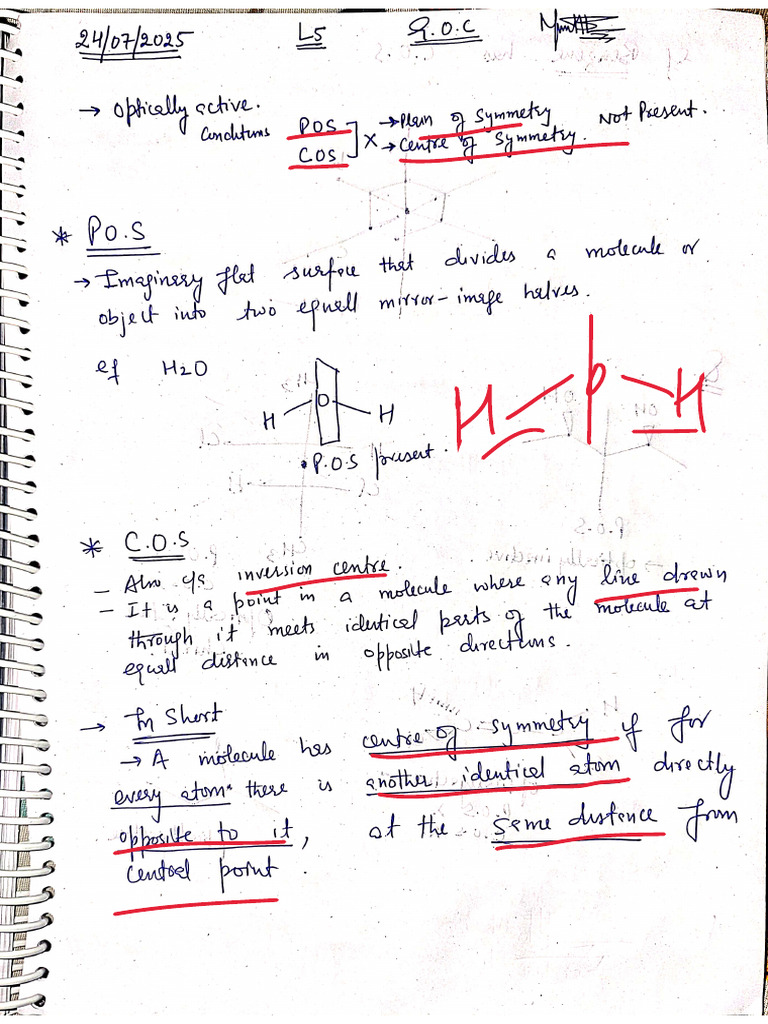 24/07/2025 L5 G.O.C
→ Optically active.
Conditions POS COS ] X → Plain of Symmetry Not Present.
→ Centre of Symmetry.
* P.O.S
→ Imaginery flat surface that divides a molecule or
object into two equall mirror-image halves.
eg H2O
H O H
H O H
• P.O.S present.
* C.O.S
– Also c/a inversion centre.
– It is a point in a molecule where any line drawn
through it meets identical parts of the molecule at
equall distance in opposite directions.
→ In Short
→ A molecule has centre of symmetry if for
every atom there is another identical atom directly
opposite to it, at the same distance from
central point.